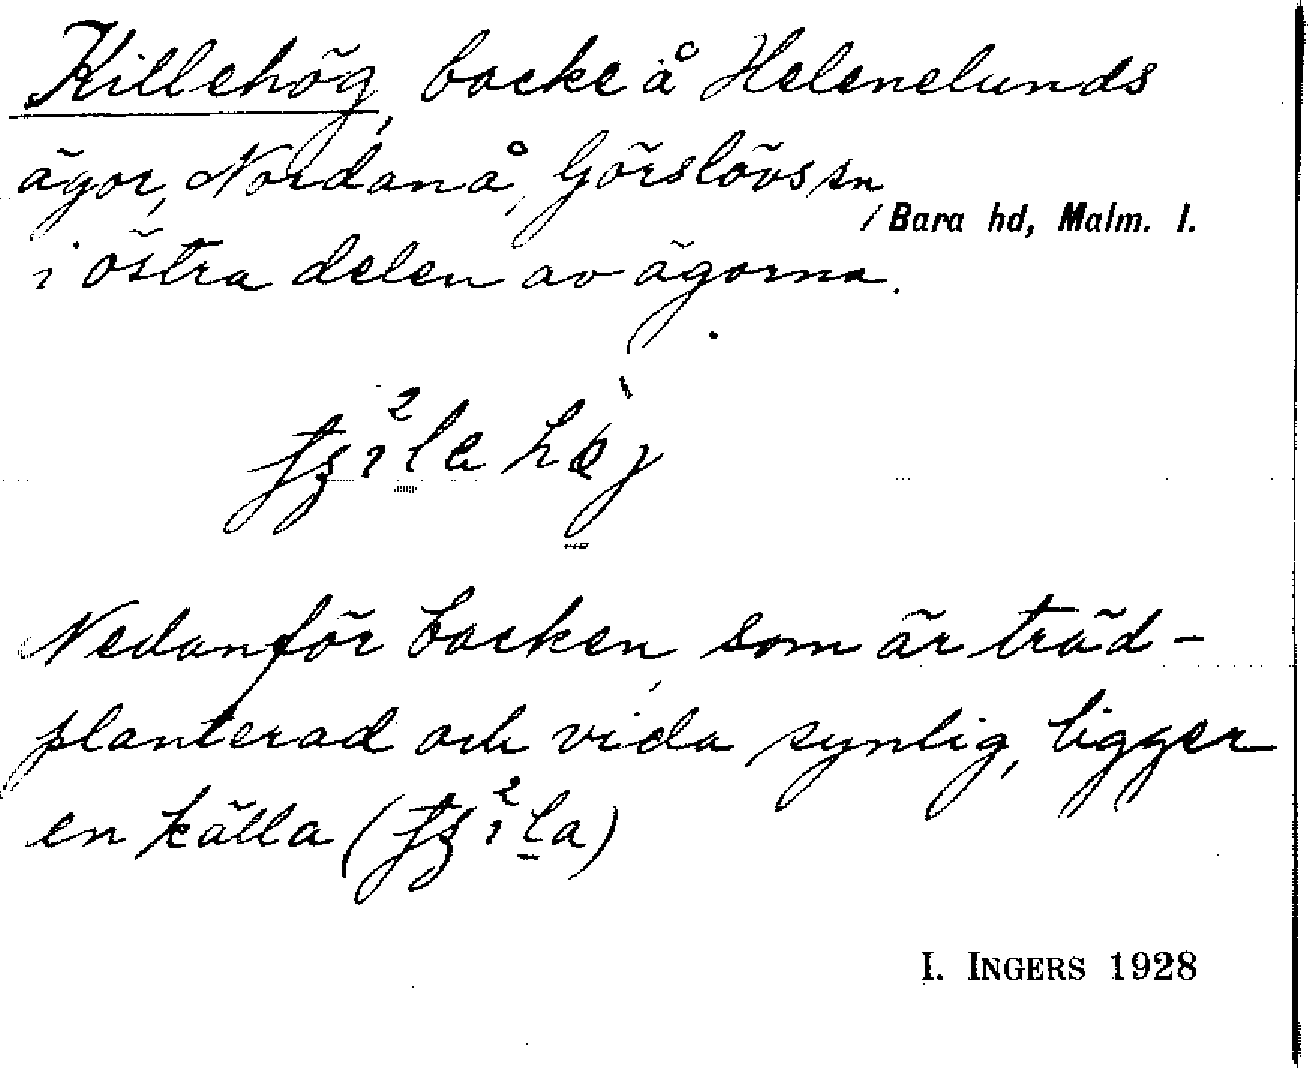 Killehög, backe å Helenelunds
ägor, Nordanå, Görslövs sn,
Bara hd, Malm. l.
i östra delen av ägorna.
Nedanför backen, som är träd-
planterad och vida synlig, ligger
en källa
I. INGERS 1928